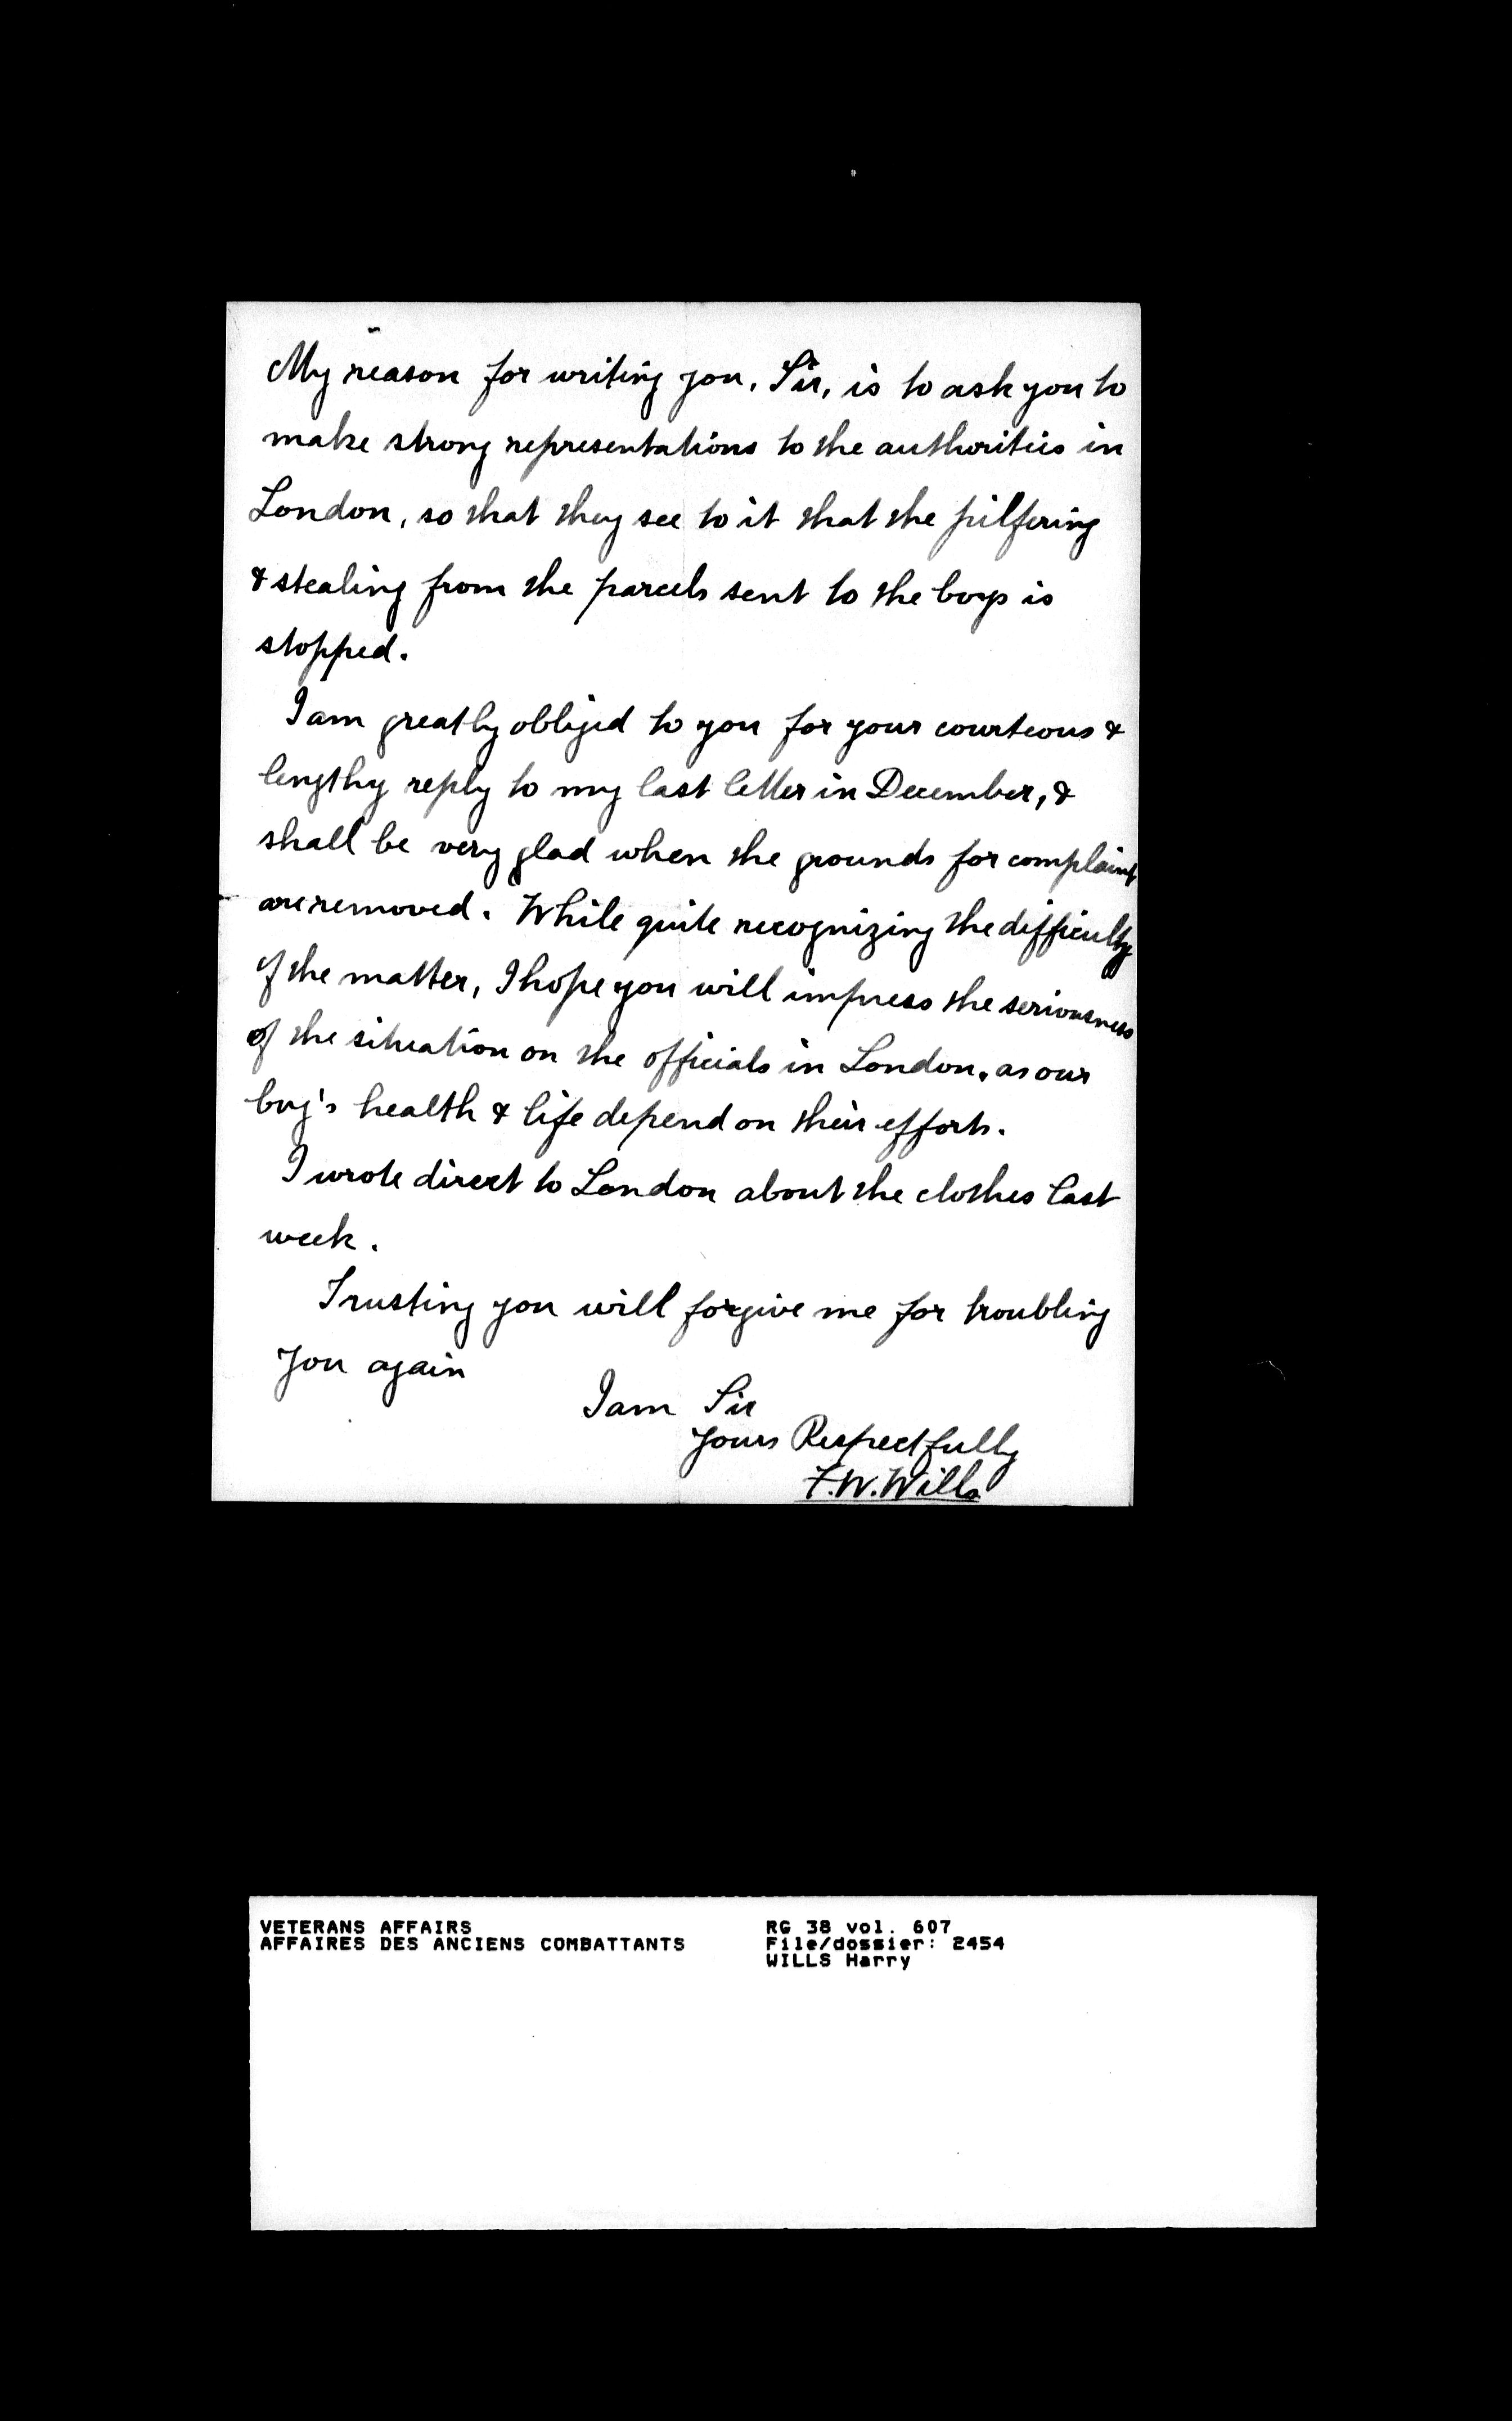 My reason for writing you, Sir, is to ask you to
make strong representations to the authorities in
London, so that they see to it that the pilfering
& stealing from the parcels sent to the boys is
stopped.
I am greatly obliged to you for your courteous &
lengthy reply to my last letter in December, &
shall be very glad when the grounds for complaint
are removed. While quite recognizing the difficulty
of the matter, I hope you will impress the seriousness
of the situation on the officials in London, as our
boy's health & life depend on their efforts.
I wrote direct to London about the clothes last
week.
Trusting you will forgive me for troubling
you again
I am Sir
Yours Respectfully
F.W. Wills
VETERANS AFFAIRS RG 38 vol. 607
AFFAIRES DES ANCIENS COMBATTANTS File/dossier: 2454
WILLS Harry